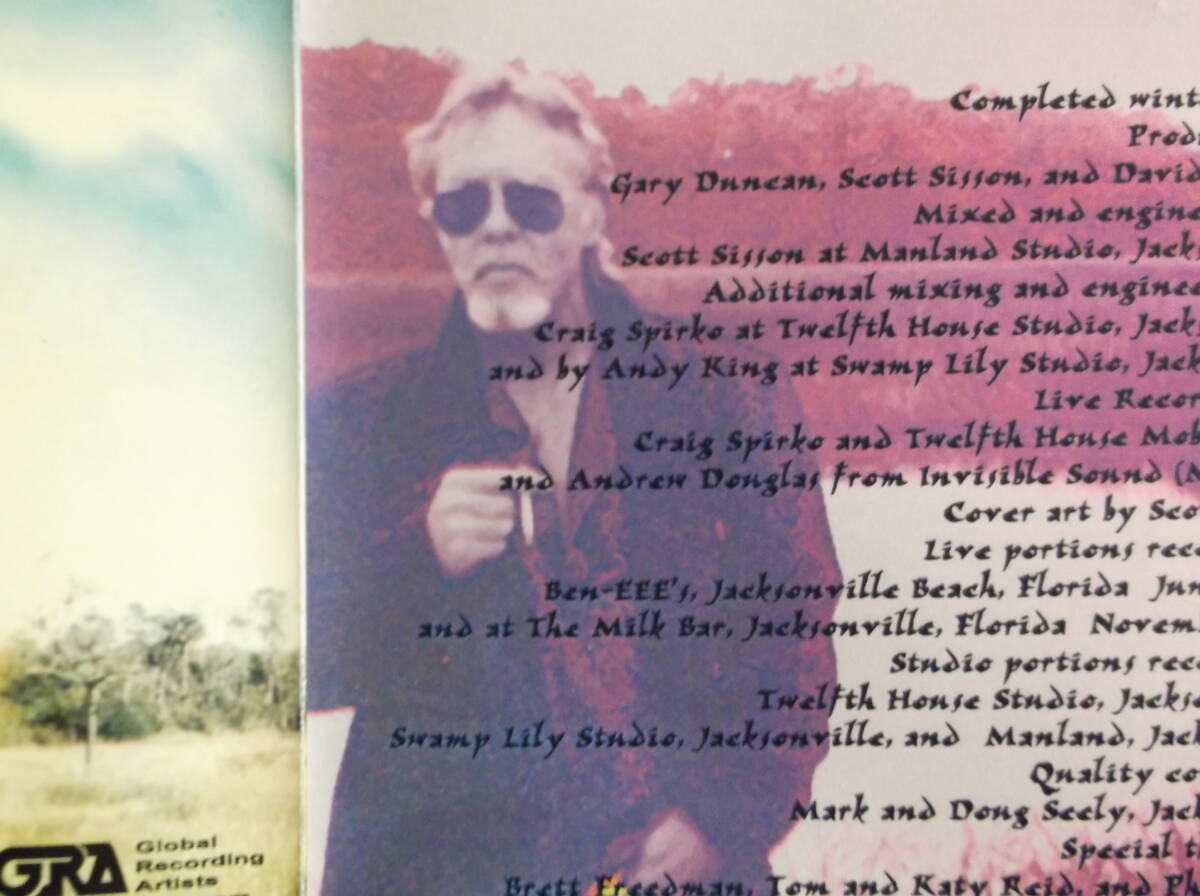 Completed wint
Prod
Gary Duncan, Scott Sisson, and David
Mixed and engine
Scott Sisson at Manland Studio, Jack
Additional mixing and enginee
Craig Spirko at Twelfth House Studio, Jack
and by Andy King at Swamp Lily Studio, Jack
Live Recor
Craig Spirko and Twelfth House Mob
and Andrew Douglas from Invisible Sound (
Cover art by Sco
Live portions rec
Ben-EEE's, Jacksonville Beach, Florida Jun
and at The Milk Bar, Jacksonville, Florida Novem
Studio portions rec
Twelfth House Studio, Jacks
Swamp Lily Studio, Jacksonville, and Manland, Jac
Quality co
Mark and Doug Seely, Jac
Special t
Brett Freedman, Tom and Katy Reid, and P
GRA
Global
Recording
Artists